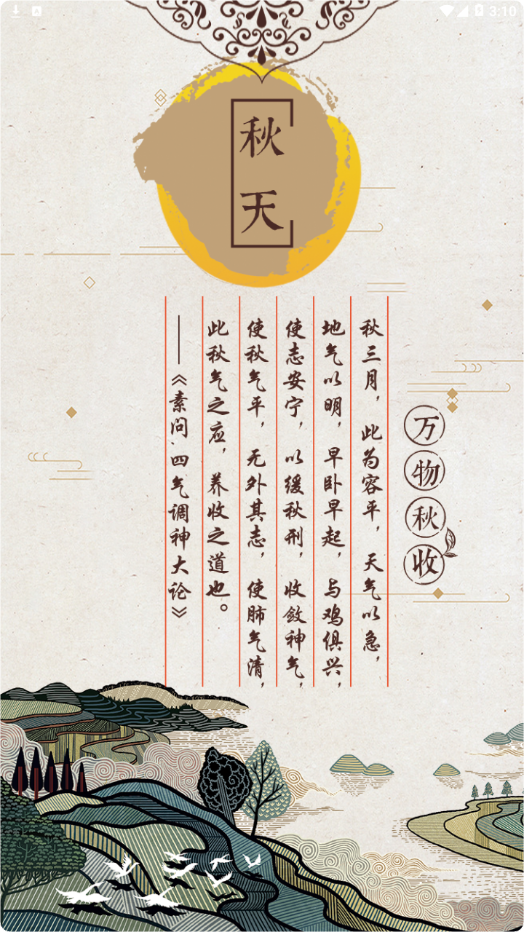 3:10
秋天
万物秋收
秋三月，此为容平，天气以急，
地气以明，早卧早起，与鸡俱兴，
使志安宁，以缓秋刑，收敛神气，
使秋气平，无外其志，使肺气清，
此秋气之应，养收之道也。
——《素问·四气调神大论》